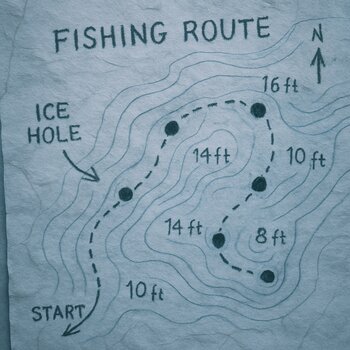 FISHING ROUTE
N
16 ft
ICE
HOLE
14 ft
10 ft
14 ft
8 ft
10 ft
START